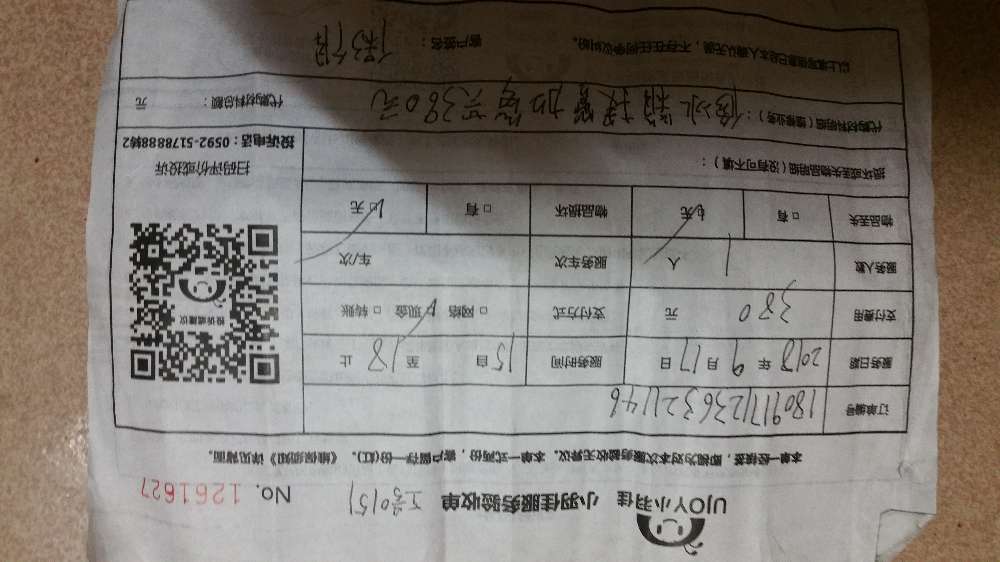 UJOY小羽佳 小羽佳服务验收单 工号0151 No. 1261627
本单一经接签，即视为对本次服务的验收无异议。本单一式两份，客户留存一份(红)。《维保须知》详见背面。
订单编号 1809171236321146
服务日期 2018年9月17日 服务时间 15自 至18止
支付费用 380 元 支付方式 □网络 ☑现金 □转账
服务人数 1人 服务车次 车/次
物品丢失 □有 ☑无 物品损坏 □有 ☑无
损坏或丢失物品明细（没有可不填）：
投诉或建议
扫码评价或投诉
投诉电话：0592-5178888转2
代购材料明细（维修业务）：修冰箱 380元
代购材料总额： 元
以上填写信息已经本人确认无误，不存在任何争议纠纷。 客户签名：